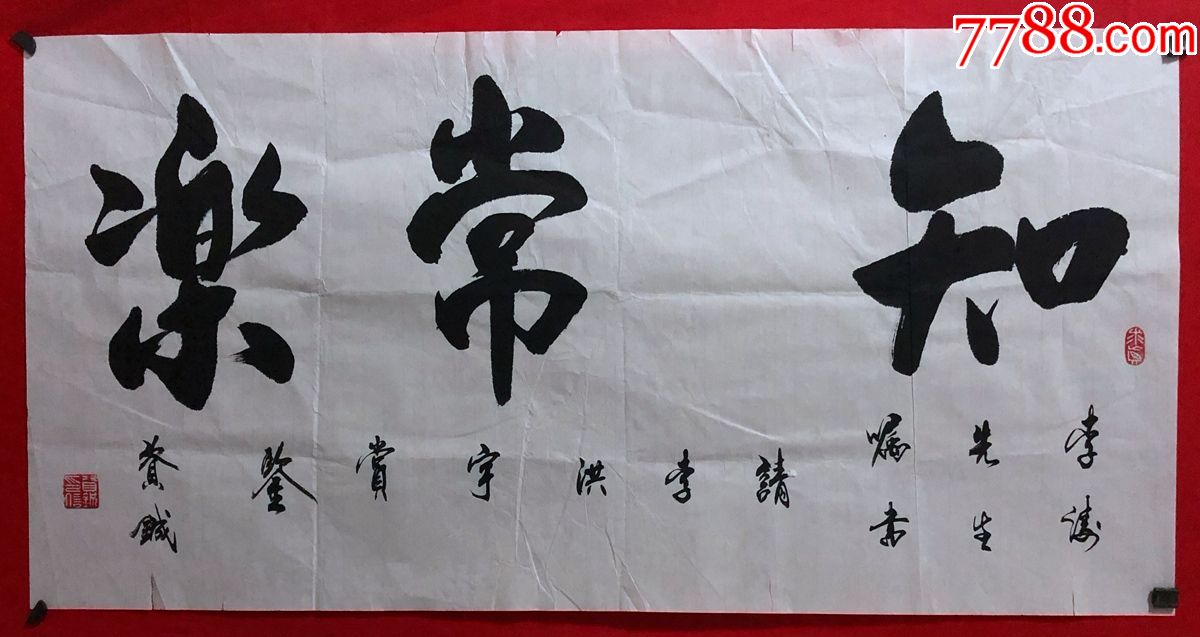 7788.com
知常樂
李濤
先生
嘱书
請李洪宇賞鑒